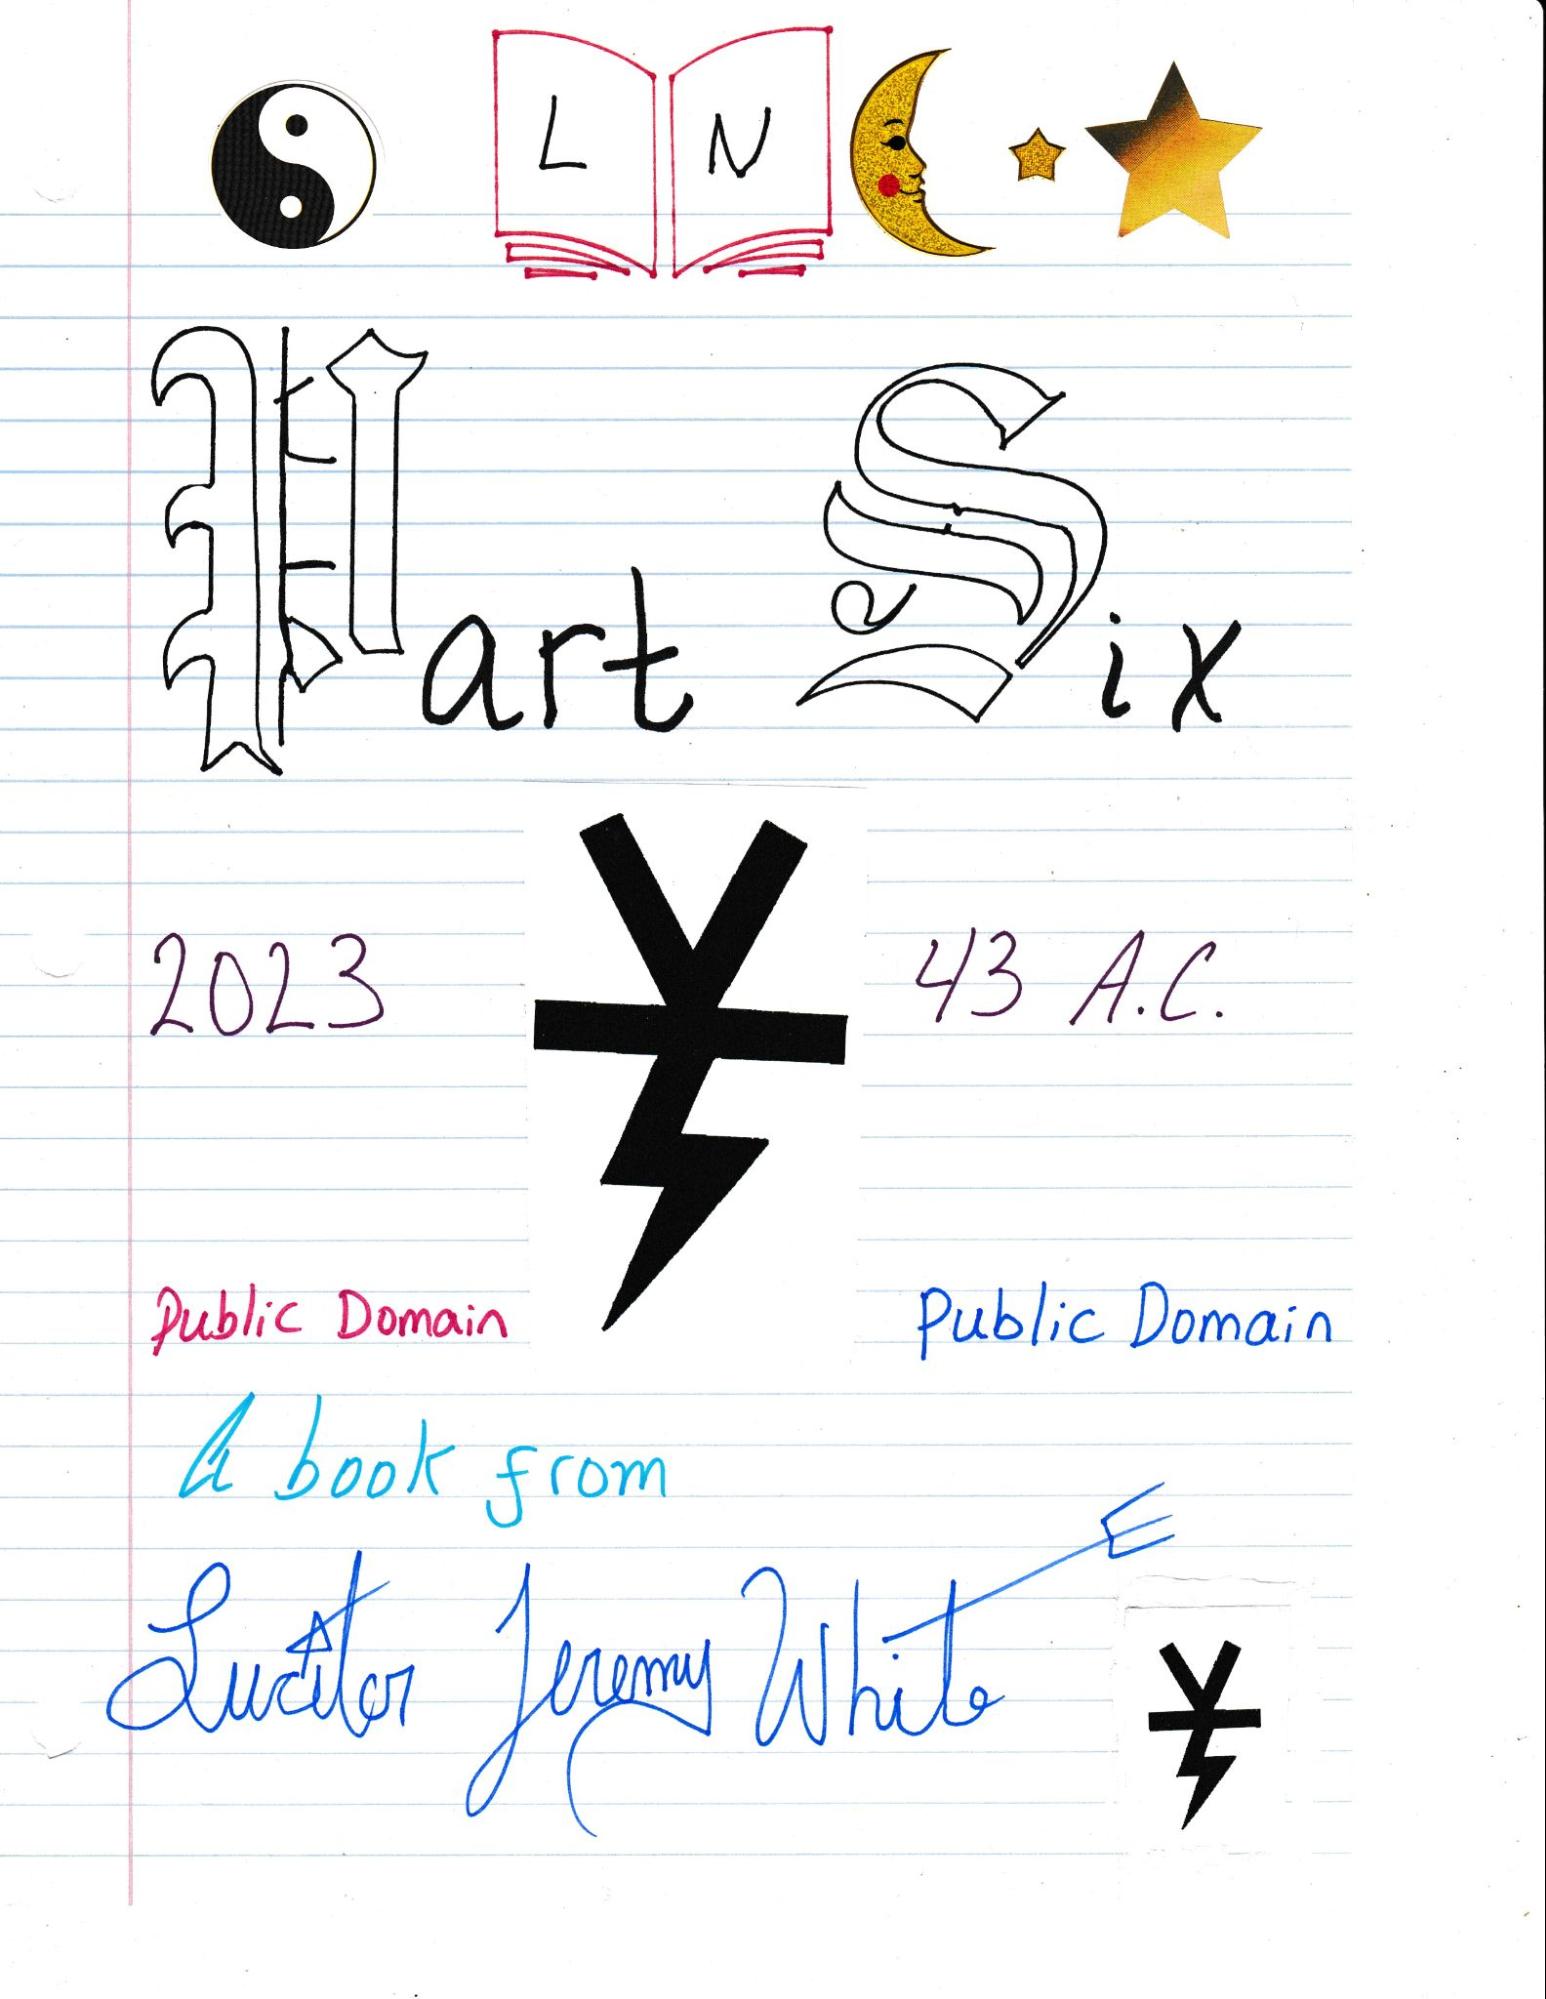 L N
Part Six
2023 43 A.C.
Public Domain Public Domain
A book from
Jeremy White